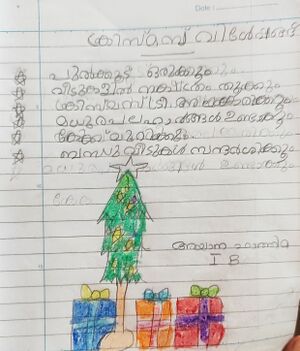 Date :
ക്രിസ്മസ് വിശേഷങ്ങൾ
പുൽക്കൂട് ഒരുക്കും
വീടുകളിൽ നക്ഷത്രം തൂക്കും
ക്രിസ്മസ് ട്രീ അലങ്കരിക്കും
മധുരപലഹാരങ്ങൾ ഉണ്ടാക്കും
കേക്ക് മുറിക്കും
ബന്ധുവീടുകൾ സന്ദർശിക്കും
ഫാത്തിമ
I B